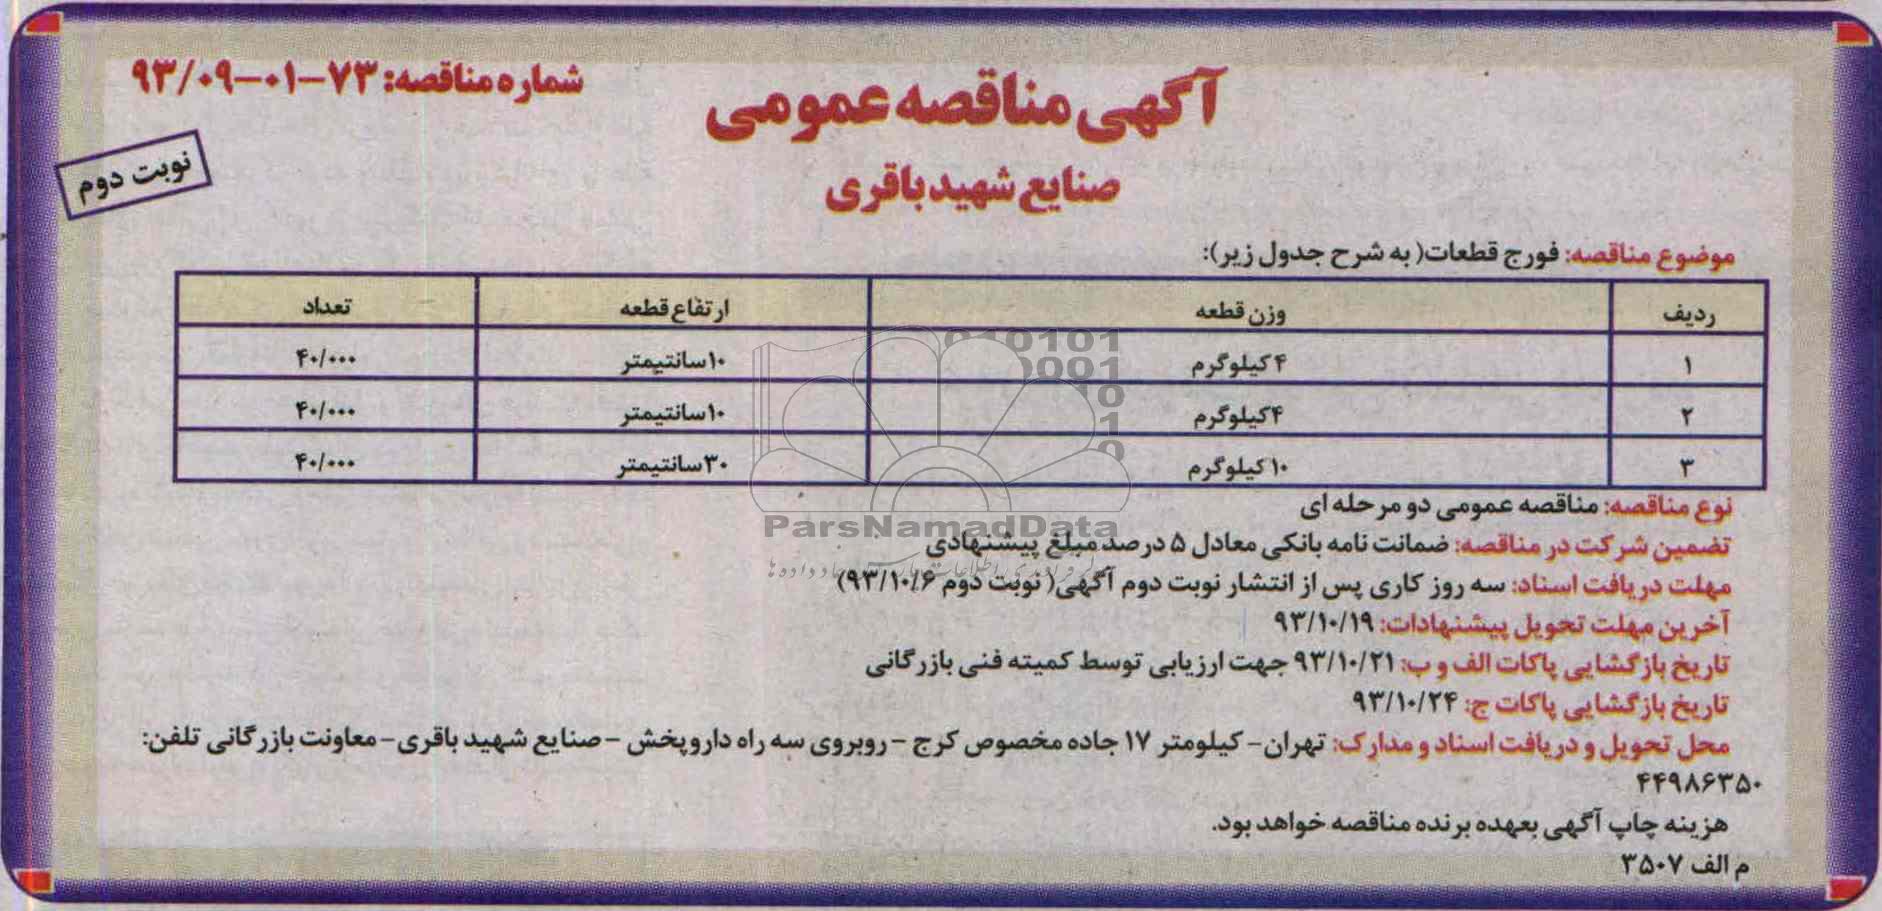 آگهی مناقصه عمومی
شماره مناقصه: ۷۳-۰۱-۹۳/۰۹
صنایع شهید باقری
نوبت دوم
موضوع مناقصه: فورج قطعات( به شرح جدول زیر):
ردیف وزن قطعه ارتفاع قطعه تعداد
۱ ۴ کیلوگرم ۱۰ سانتیمتر ۴۰/۰۰۰
۲ ۴ کیلوگرم ۱۰ سانتیمتر ۴۰/۰۰۰
۳ ۱۰ کیلوگرم ۳۰ سانتیمتر ۴۰/۰۰۰
نوع مناقصه: مناقصه عمومی دو مرحله ای
تضمین شرکت در مناقصه: ضمانت نامه بانکی معادل ۵ درصد مبلغ پیشنهادی
مهلت دریافت اسناد: سه روز کاری پس از انتشار نوبت دوم آگهی( نوبت دوم ۹۳/۱۰/۶)
آخرین مهلت تحویل پیشنهادات: ۹۳/۱۰/۱۹
تاریخ بازگشایی پاکات الف و ب: ۹۳/۱۰/۲۱ جهت ارزیابی توسط کمیته فنی بازرگانی
تاریخ بازگشایی پاکات ج: ۹۳/۱۰/۲۴
محل تحویل و دریافت اسناد و مدارک: تهران- کیلومتر ۱۷ جاده مخصوص کرج - روبروی سه راه داروپخش - صنایع شهید باقری- معاونت بازرگانی تلفن:
۴۴۹۸۶۳۵۰
هزینه چاپ آگهی بعهده برنده مناقصه خواهد بود.
م الف ۳۵۰۷
ParsNamadData